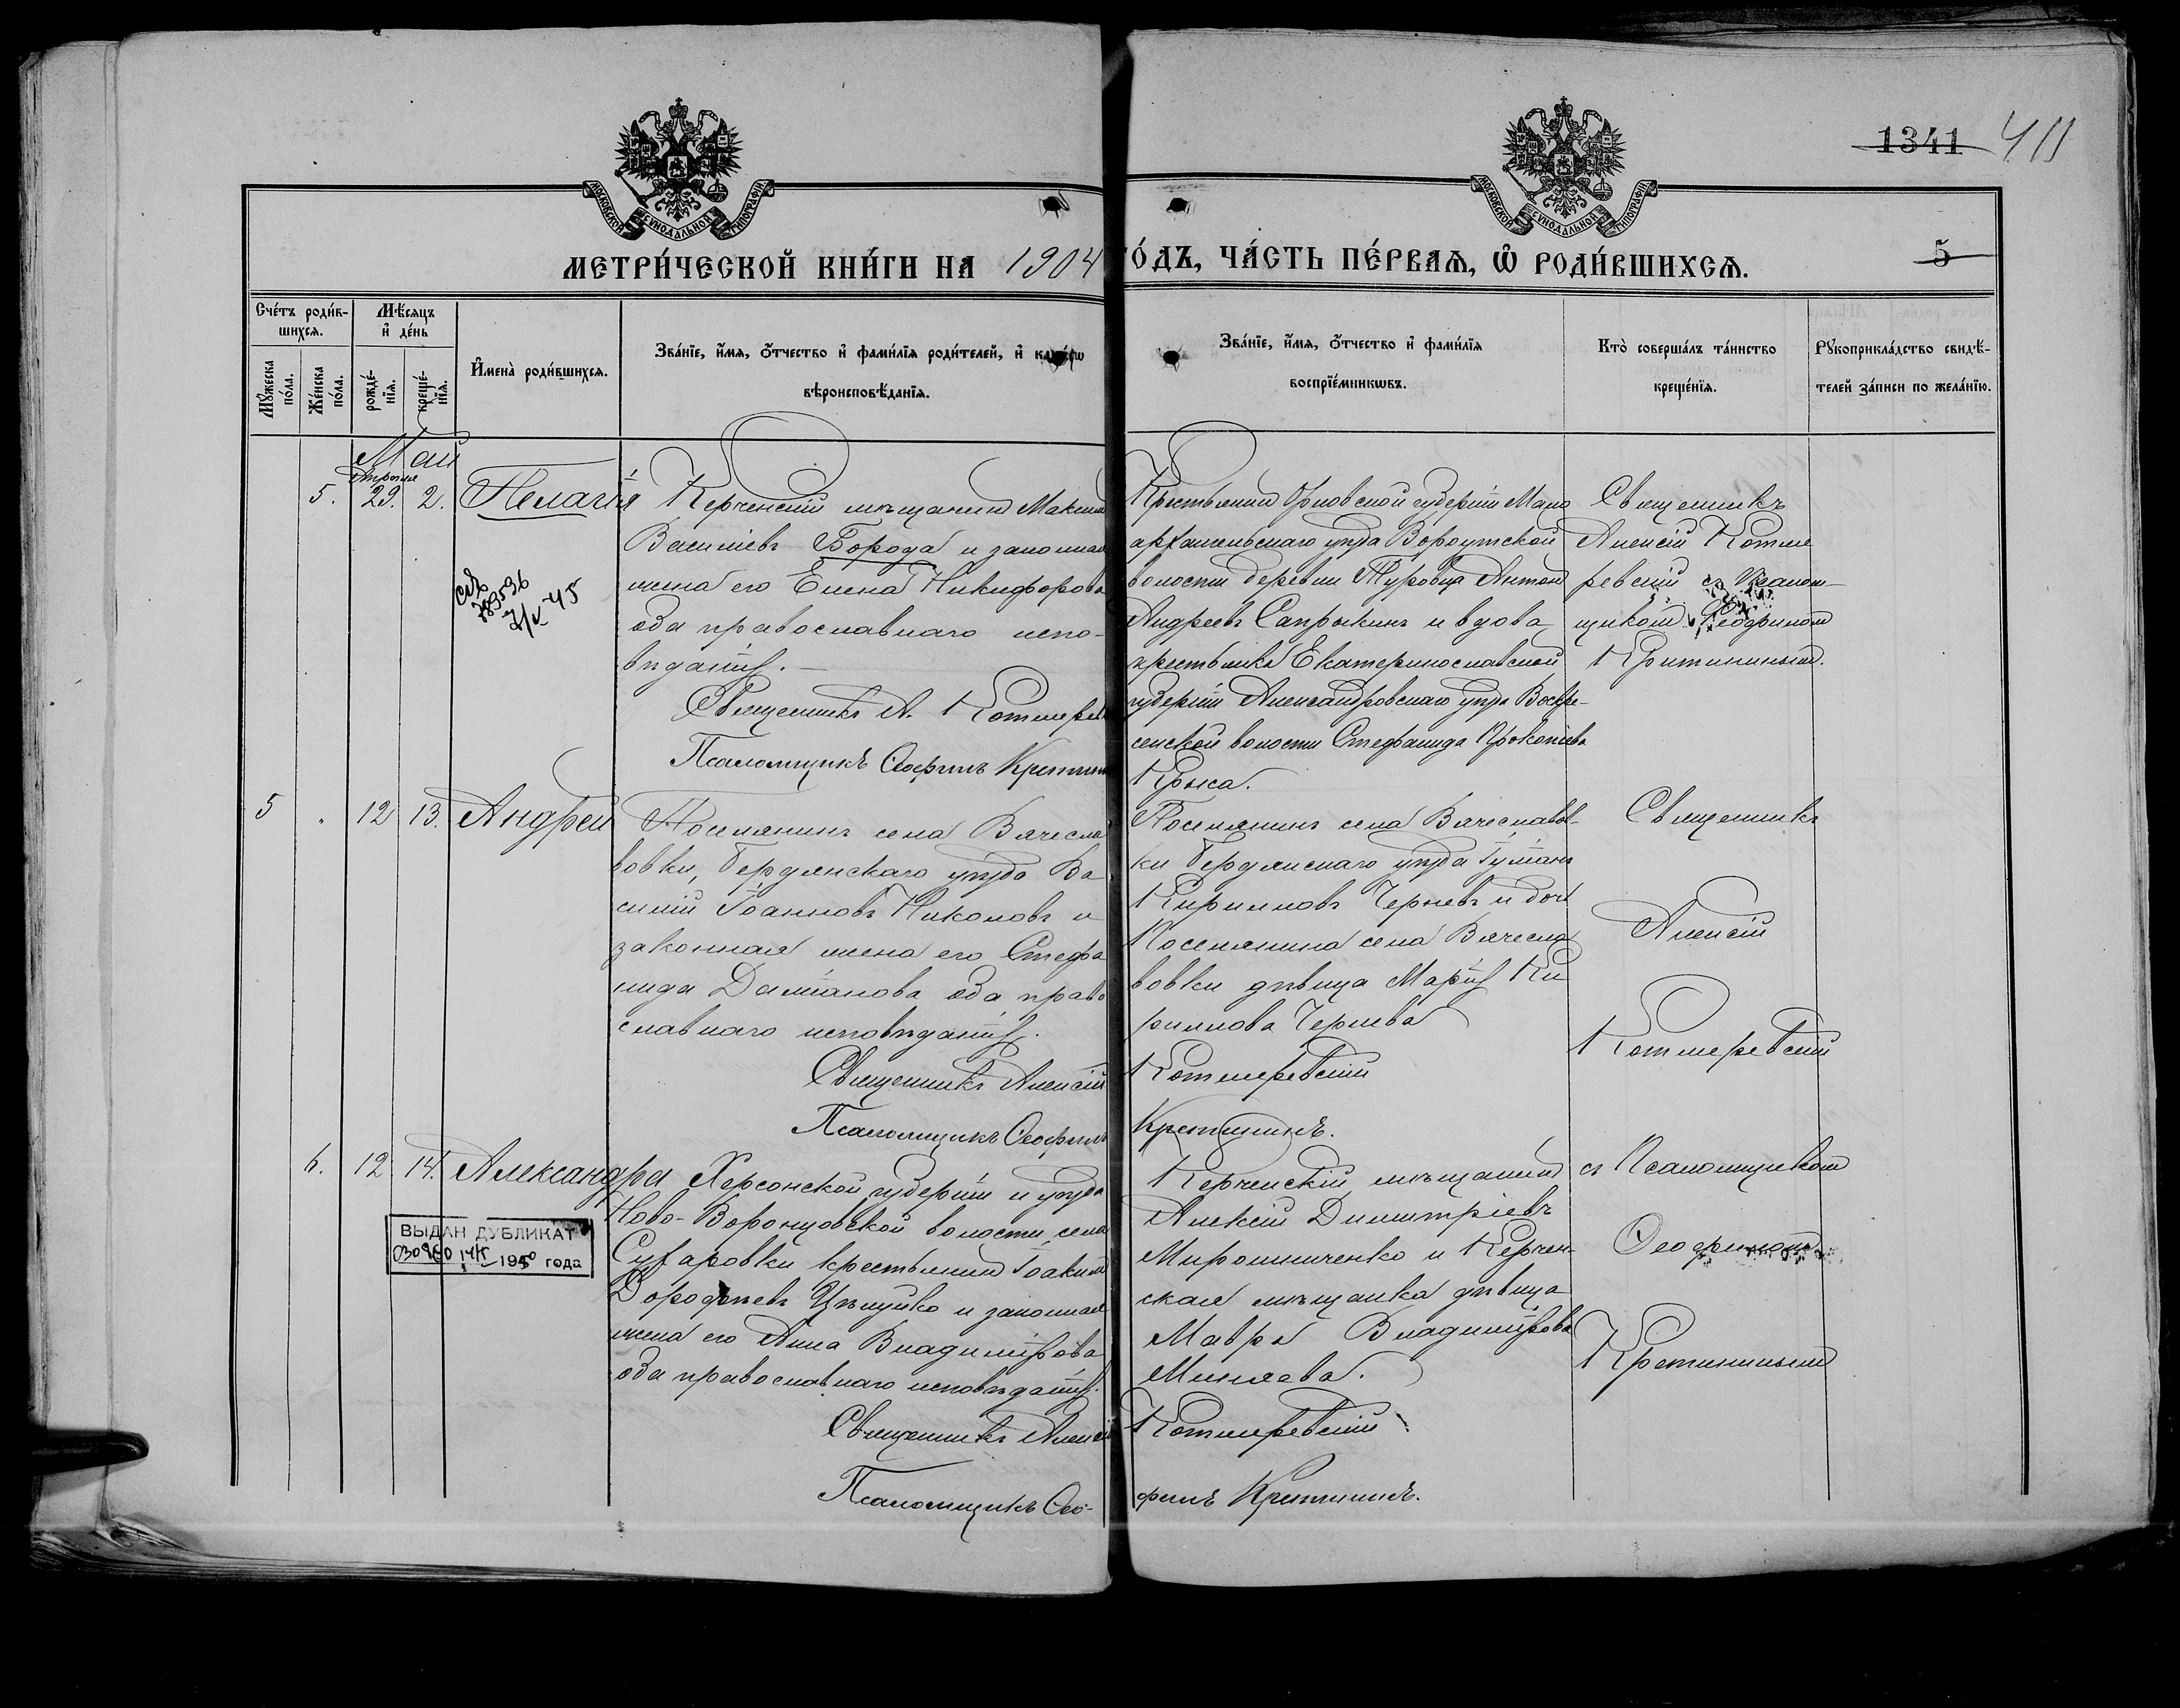 1341 411
МОСКОВСКОЙ СѴНОДАЛЬНОЙ ТИПОГРАФІИ
МОСКОВСКОЙ СѴНОДАЛЬНОЙ ТИПОГРАФІИ
МЕТРИ́ЧЕСКОЙ КНИ́ГИ НА 1904 ГО́ДЪ, ЧА́СТЬ ПЕ́РВАѦ, Ѡ РОДИ́ВШИХСѦ.
5
Сче́тъ роди́в-
шихсѧ.
Мꙋ́жеска по́ла.
Же́нска по́ла.
Мѣ́сѧцъ
и҆ де́нь
рожде́-
нїѧ.
креще́-
нїѧ.
И҆мена̀ роди́вшихсѧ.
Зва́нїе, и҆́мѧ, ѻ҆́тчество и҆ фами́лїѧ роди́телей, и҆ како́гѡ
вѣроисповѣ́данїѧ.
Зва́нїе, и҆́мѧ, ѻ҆́тчество и҆ фами́лїѧ
воспрїе́мникѡвъ.
Кто̀ соверша́лъ та́инство
креще́нїѧ.
Рꙋкоприкла́дство свидѣ́-
телей за́писи по жела́нїю.
Май
Апрѣля
5. 29. 2. Пелагія
Керченскій мѣщанинъ Максимъ
Василіевъ Борода и законная
жена его Елена Никифорова
оба православнаго испо-
вѣданія.
Священникъ А. Котляревскій
Псаломщикъ Ѳеофилъ
Крестьянинъ Орловской губерніи Мало
архангельскаго уѣзда
волости деревни Туровца Антонъ
Андреевъ Сапрыкинъ и вдова
крестьянка Екатеринославской
губерніи Александровскаго уѣзда Воскре-
сенской волости Стефанида Прокопіева
Священникъ
Алексій Котля
ревскій съ Псалом-
щикомъ Ѳеофиломъ
783536
5 12 13. Андрей
Поселянинъ села Вячесла
вовки, Бердянскаго уѣзда Ва
силій Іоанновъ Николовъ и
законная жена его Стефа
нида Даміанова оба право
славнаго исповѣданія.
Священникъ Алексій Котляревскій
Псаломщикъ Ѳеофилъ
Поселянинъ села Вячеславов-
ки Бердянскаго уѣзда
Кирилловъ Черневъ и дочь
Поселянина села Вячесла
вовки дѣвица Марія Ки
риллова Чернева
Священникъ
Алексій
Котляревскій
6. 12 14. Александра
Херсонской губерніи и уѣзда
Ново-Воронцовской волости села
крестьянинъ Іоакимъ
Дорофѣевъ и законная
жена его Анна Владимірова
оба православнаго исповѣданія.
Священникъ Алексій Котляревскій
Псаломщикъ Ѳео-
филъ
Керченскій мѣщанинъ
Алексій Димитріевъ
Мирошниченко и Керчен-
ская мѣщанка дѣвица
Мавра Владимірова
Миняева.
съ Псаломщикомъ
Ѳеофиломъ
ВЫДАН ДУБЛИКАТ
1950 года